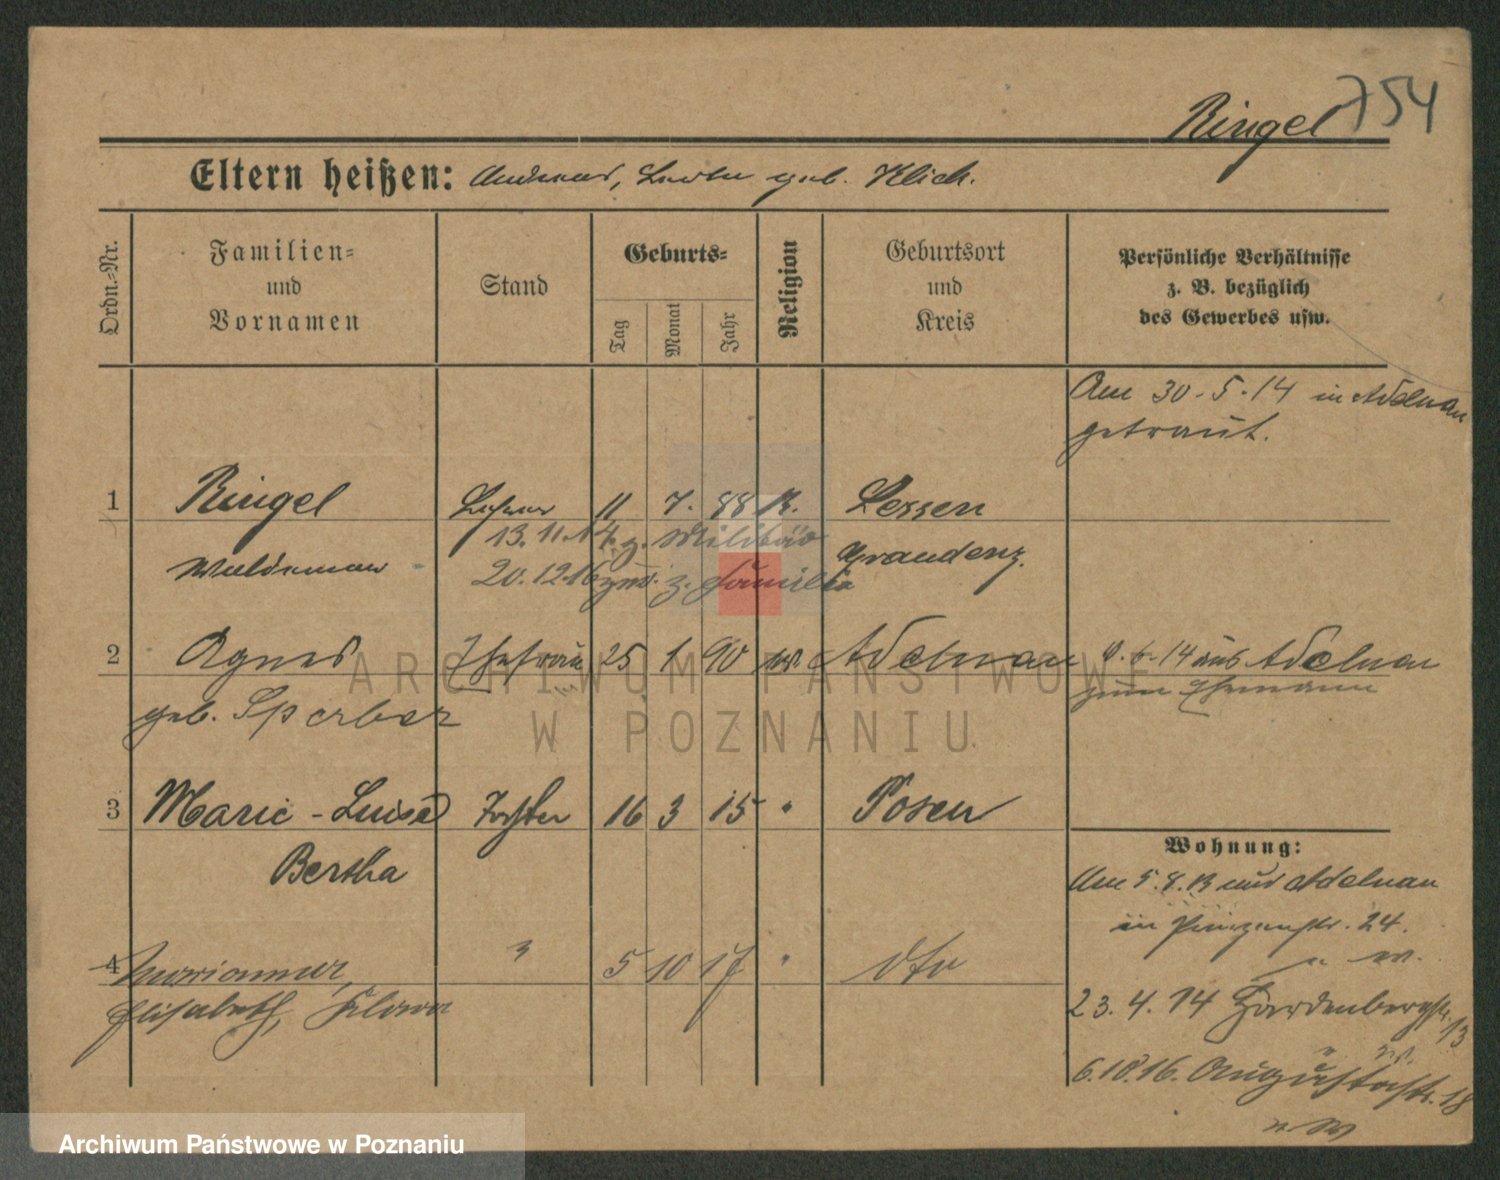 Ringel 754
Eltern heißen: Andreas, geb. Klich.
Ordn.-Nr.
Familien-
und
Vornamen
Stand
Geburts-
Tag
Monat
Jahr
Religion
Geburtsort
und
Kreis
Persönliche Verhältnisse
z. B. bezüglich
des Gewerbes usw.
Am 30.5.14 in Adelnau
getraut.
1 Ringel Lehrer 11 7. 88 K. Lessen
13.11.14 z. Militär
Waldemar Graudenz.
20.12.16 zur. z. Familie
2 Agnes Ehefrau 25 1 90 Adelnau 6.14 aus Adelnau
zum Ehemann
geb. Sperber
3 Marie-Luise Tochter 16 3 15 " Posen
Bertha
Wohnung:
Am 5.8.13 aus Adelnau
in Prinzenstr. 24.
4 Marianna, " 5 10 17 " dto
Elisabeth,
23.4.14 Hardenbergstr. 13
6.10.16. Augustastr. 18
ARCHIWUM PAŃSTWOWE
W POZNANIU
Archiwum Państwowe w Poznaniu